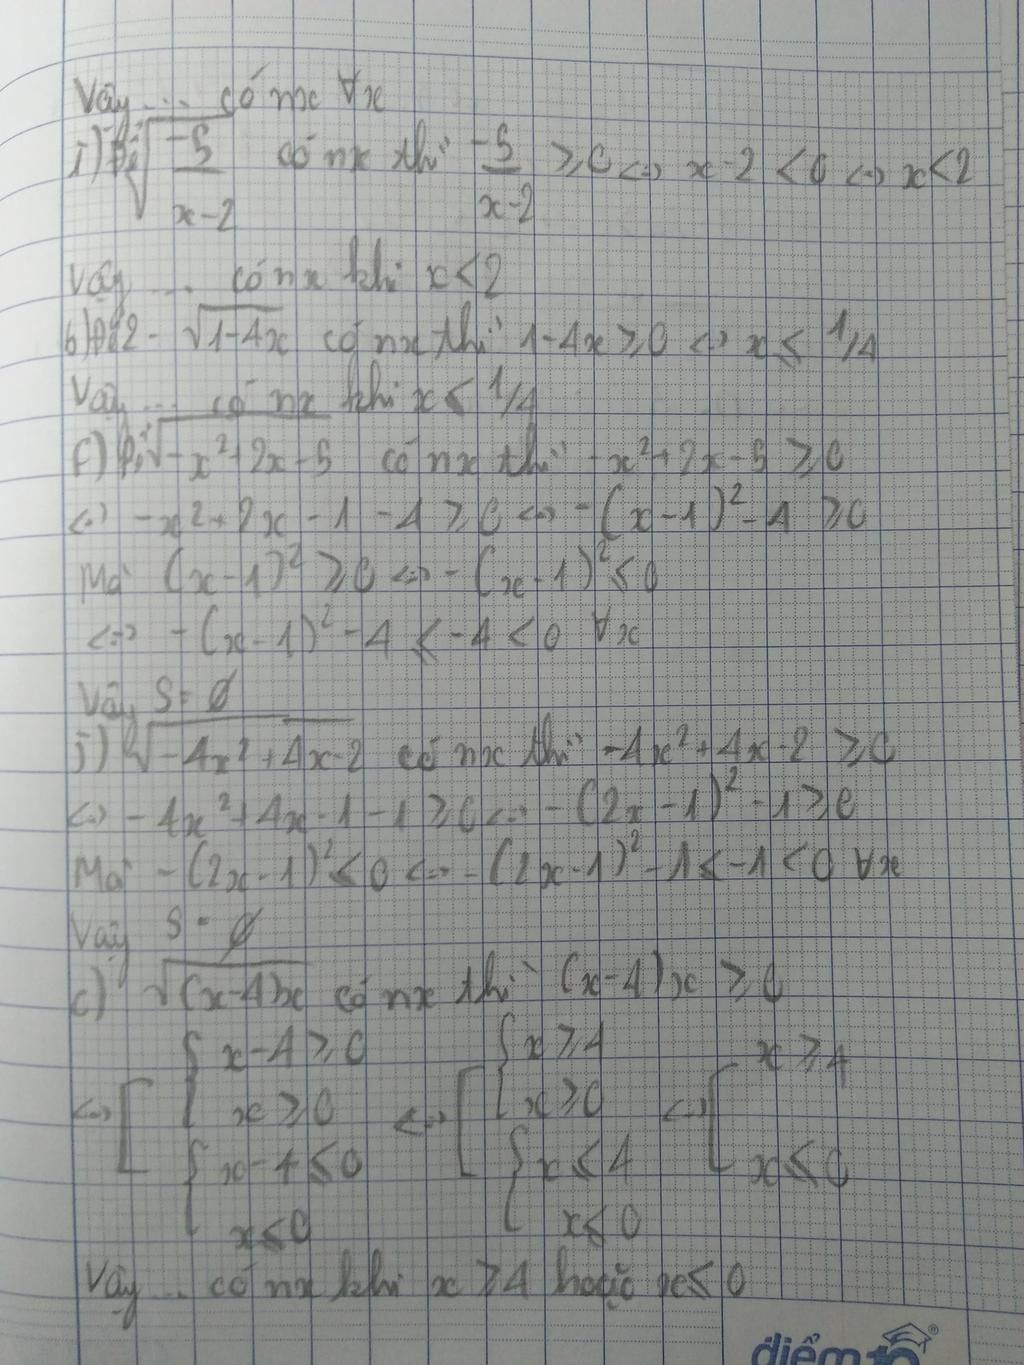 Vậy ... có nx ∀x
i) Để √(-5/(x-2)) có nx thì -5/(x-2) ≥ 0 <=> x-2 < 0 <=> x < 2
Vậy ... có nx khi x < 2
b) Để 2 - √(1-4x) có nx thì 1-4x ≥ 0 <=> x ≤ 1/4
Vậy ... có nx khi x ≤ 1/4
f) Để √(-x²+2x-5) có nx thì -x²+2x-5 ≥ 0
<=> -x²+2x-1-4 ≥ 0 <=> -(x-1)²-4 ≥ 0
Mà (x-1)² ≥ 0 <=> -(x-1)² ≤ 0
<=> -(x-1)²-4 ≤ -4 < 0 ∀x
Vậy S = ∅
j) √(-4x²+4x-2) có nx thì -4x²+4x-2 ≥ 0
<=> -4x²+4x-1-1 ≥ 0 <=> -(2x-1)²-1 ≥ 0
Mà -(2x-1)² ≤ 0 <=> -(2x-1)²-1 ≤ -1 < 0 ∀x
Vậy S = ∅
c) √((x-4)x) có nx thì (x-4)x ≥ 0
<=> [ { x-4 ≥ 0 [ { x ≥ 4 [ x ≥ 4
x ≥ 0 <=> x ≥ 0 <=>
{ x-4 ≤ 0 { x ≤ 4 x ≤ 0
x ≤ 0 x ≤ 0
Vậy ... có nx khi x ≥ 4 hoặc x ≤ 0
điểm 10